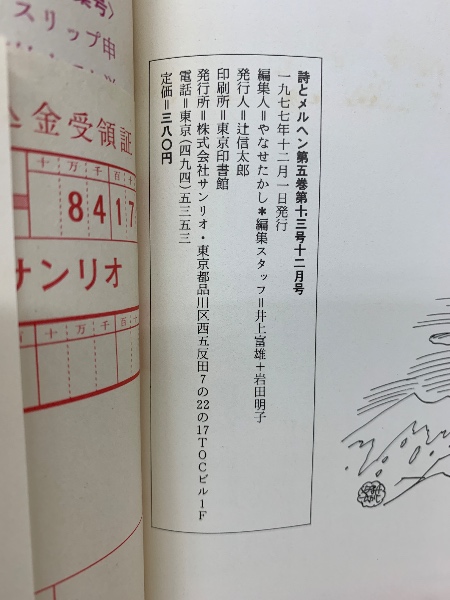 詩とメルヘン第五巻第十三号十二月号
一九七七年十二月一日発行
編集人＝やなせたかし＊編集スタッフ＝井上富雄＋岩田明子
発行人＝辻信太郎
印刷所＝東京印書館
発行所＝株式会社サンリオ・東京都品川区西五反田7の22の17TOCビル1F
電話＝東京（四九四）五三五三
定価＝三八〇円
号〉
スリップ申
金受領証
十万千百十
8417
サンリオ
十万千百十